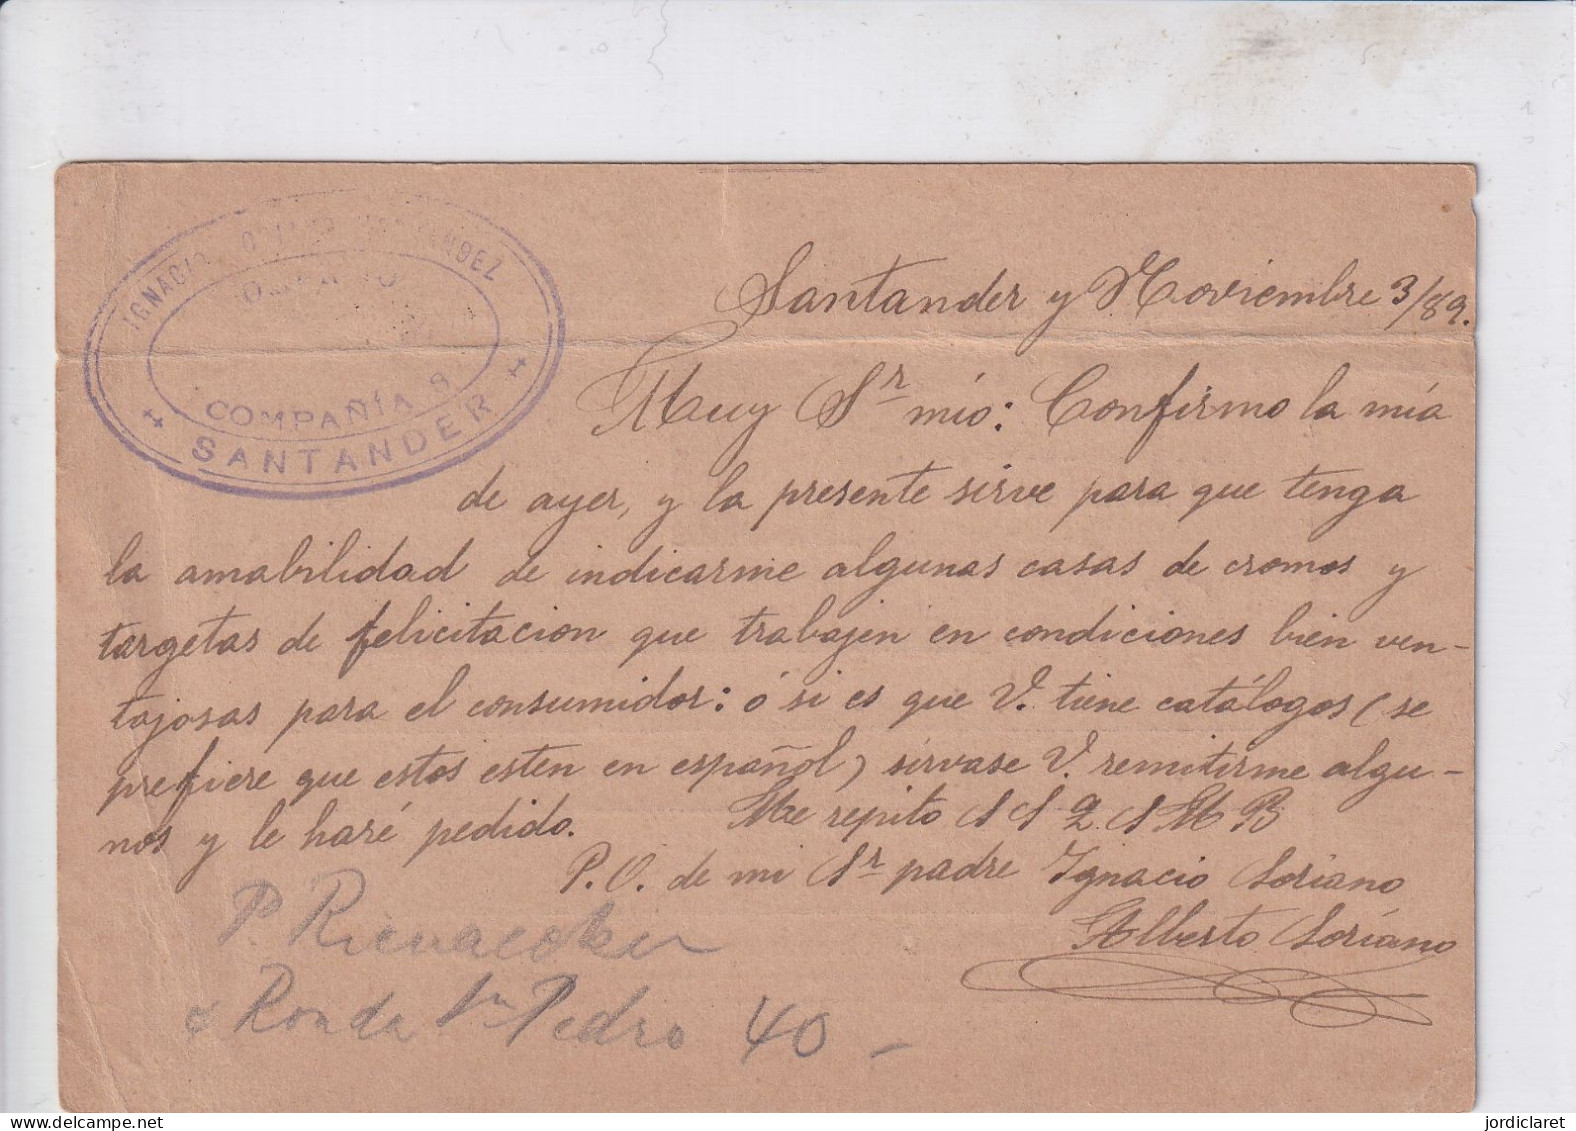 IGNACIO
COMPAÑÍA 8
SANTANDER
Santander y Noviembre 3/89.
Muy Sr mío: Confirmo la mía
de ayer, y la presente sirve para que tenga
la amabilidad de indicarme algunas casas de cromos y
targetas de felicitacion que trabajen en condiciones bien ven-
tajosas para el consumidor: ó si es que V. tiene catálogos (se
prefiere que estos esten en español) sírvase V. remitirme algu-
nos y le haré pedido. Me repito S S Q S M B
P.O. de mi Sr padre Ignacio Soriano
Alberto Soriano
P.
Ronda Sn Pedro 40 -
jordiclaret